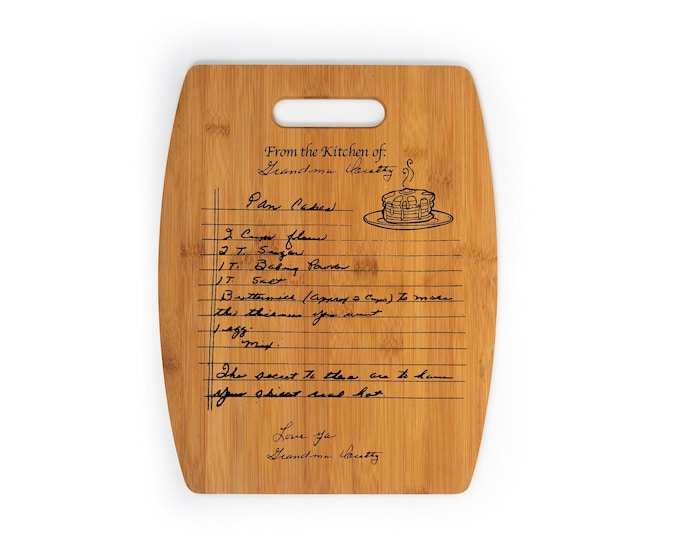 From the Kitchen of:
Grandma Dorothy
Pan Cakes
2 Cups flour
2 T. Sugar
1 T. Baking Powder
1 T. Salt
Buttermilk (approx 2 Cups) to make
the thickness you want
1 egg.
Mix.
The secret to these are to have
your skillet real hot
Love ya
Grandma Dorothy